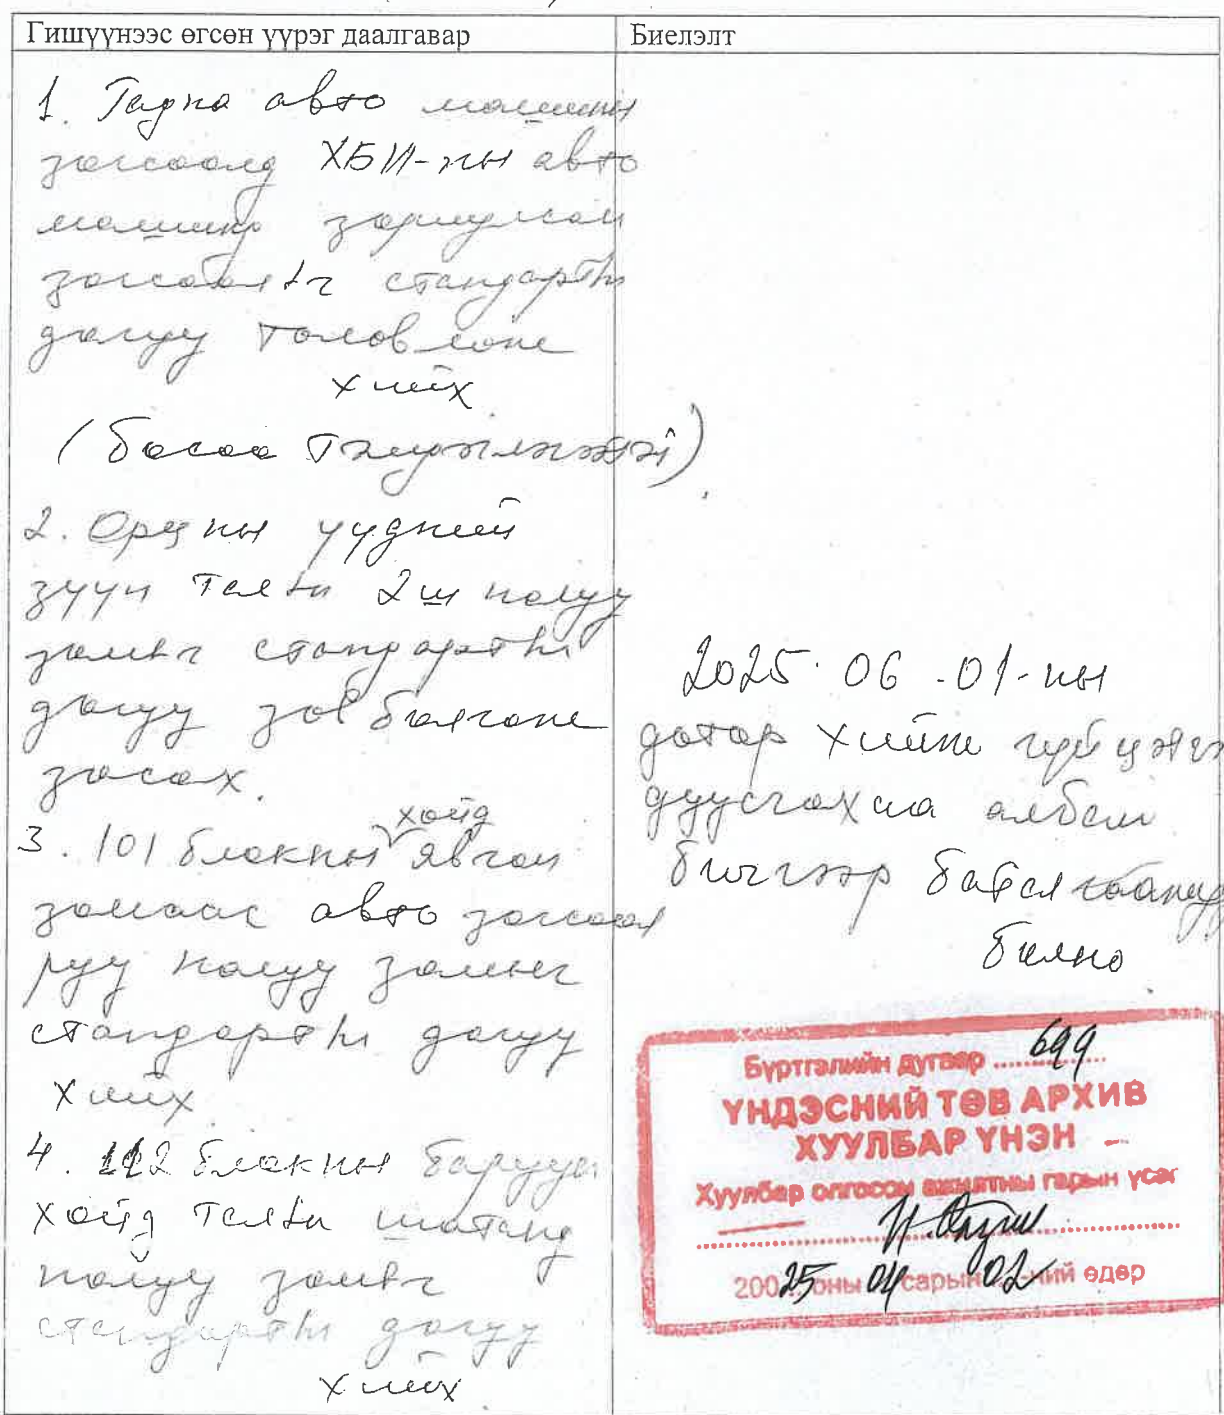 Гишүүнээс өгсөн үүрэг даалгавар
1. Гадна авто машины
зогсоолд ХБИ-ны авто
машинд зориулсан
зогсоолыг стандартын
дагуу төлөвлөж
хийх
(босоо тэмдэглэгээтэй)
2. Орцны үүдний
зүүн талын 2ш налуу
замыг стандартын
дагуу зөв болгож
засах.
3. 101 блокны хойд явган
замаас авто зогсоол
руу налуу замыг
стандартын дагуу
хийх
4. 112 блокны баруун
хойд талын шатанд
налуу замыг
стандартын дагуу
хийх
Биелэлт
2025.06.01-ны
дотор хийж гүйцэтгэ
дуусгахаа албан
бичгээр баталгаажуу
болно
Бүртгэлийн дугаар ..... 699
ҮНДЭСНИЙ ТӨВ АРХИВ
ХУУЛБАР ҮНЭН
Хуулбар олгосон ажилтны гарын үсэг
200 25 оны 04 сарын 02-ний өдөр